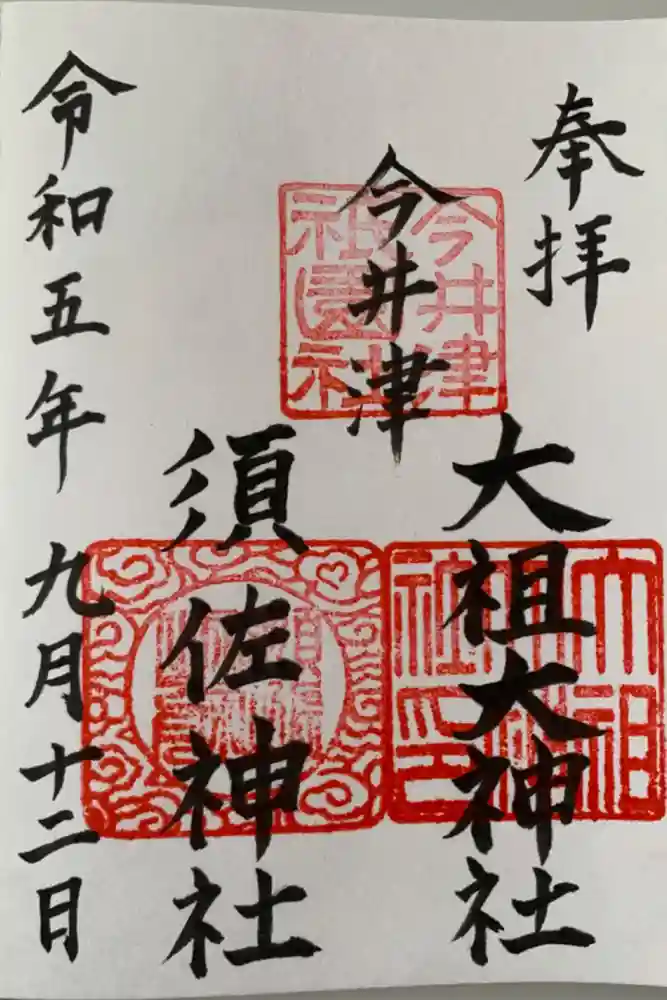 奉拝
今井津
今井津
祇園社
大祖大神社
須佐神社
令和五年 九月十二日